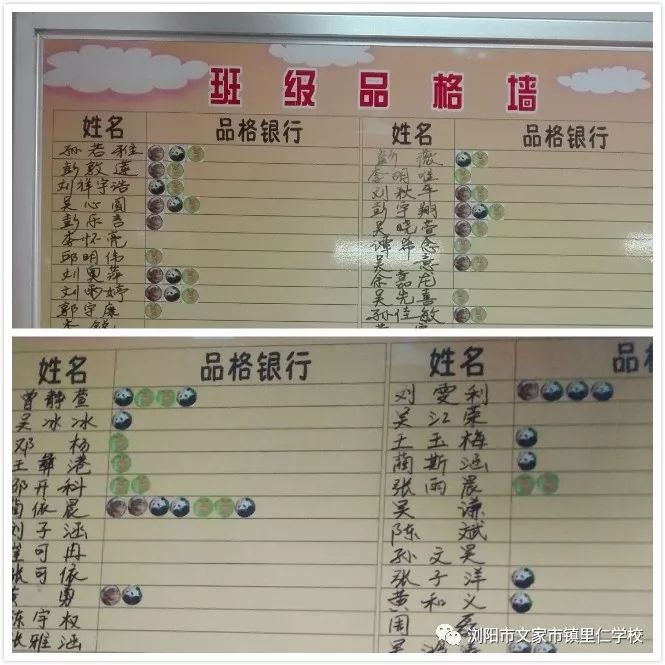 班级品格墙
姓名 品格银行 姓名 品格银行
孙若雅 彭薇
彭敦莲 李明唯
刘祥宇浩 刘秋平
吴心圆 彭宇翔
彭乐吾 吴晓萱
李怀亮
邱明伟 吴意
刘勇萍 余嘉龙
刘雨婷 吴先善
郭宇廉 孙佳敏
姓名 品格银行 姓名
曾静萱 刘雯利
吴冰冰 吴江荣
邓杨 王玉梅
王彝港 蔺斯涵
邵开科 张雨晨
蔺依晨 吴谦
刘子涵 陈斌
崔可冉 孙文昊
张可依 张子洋
黄勇 黄和义
陈宇权 周
张雅涵 吴
浏阳市文家市镇里仁学校